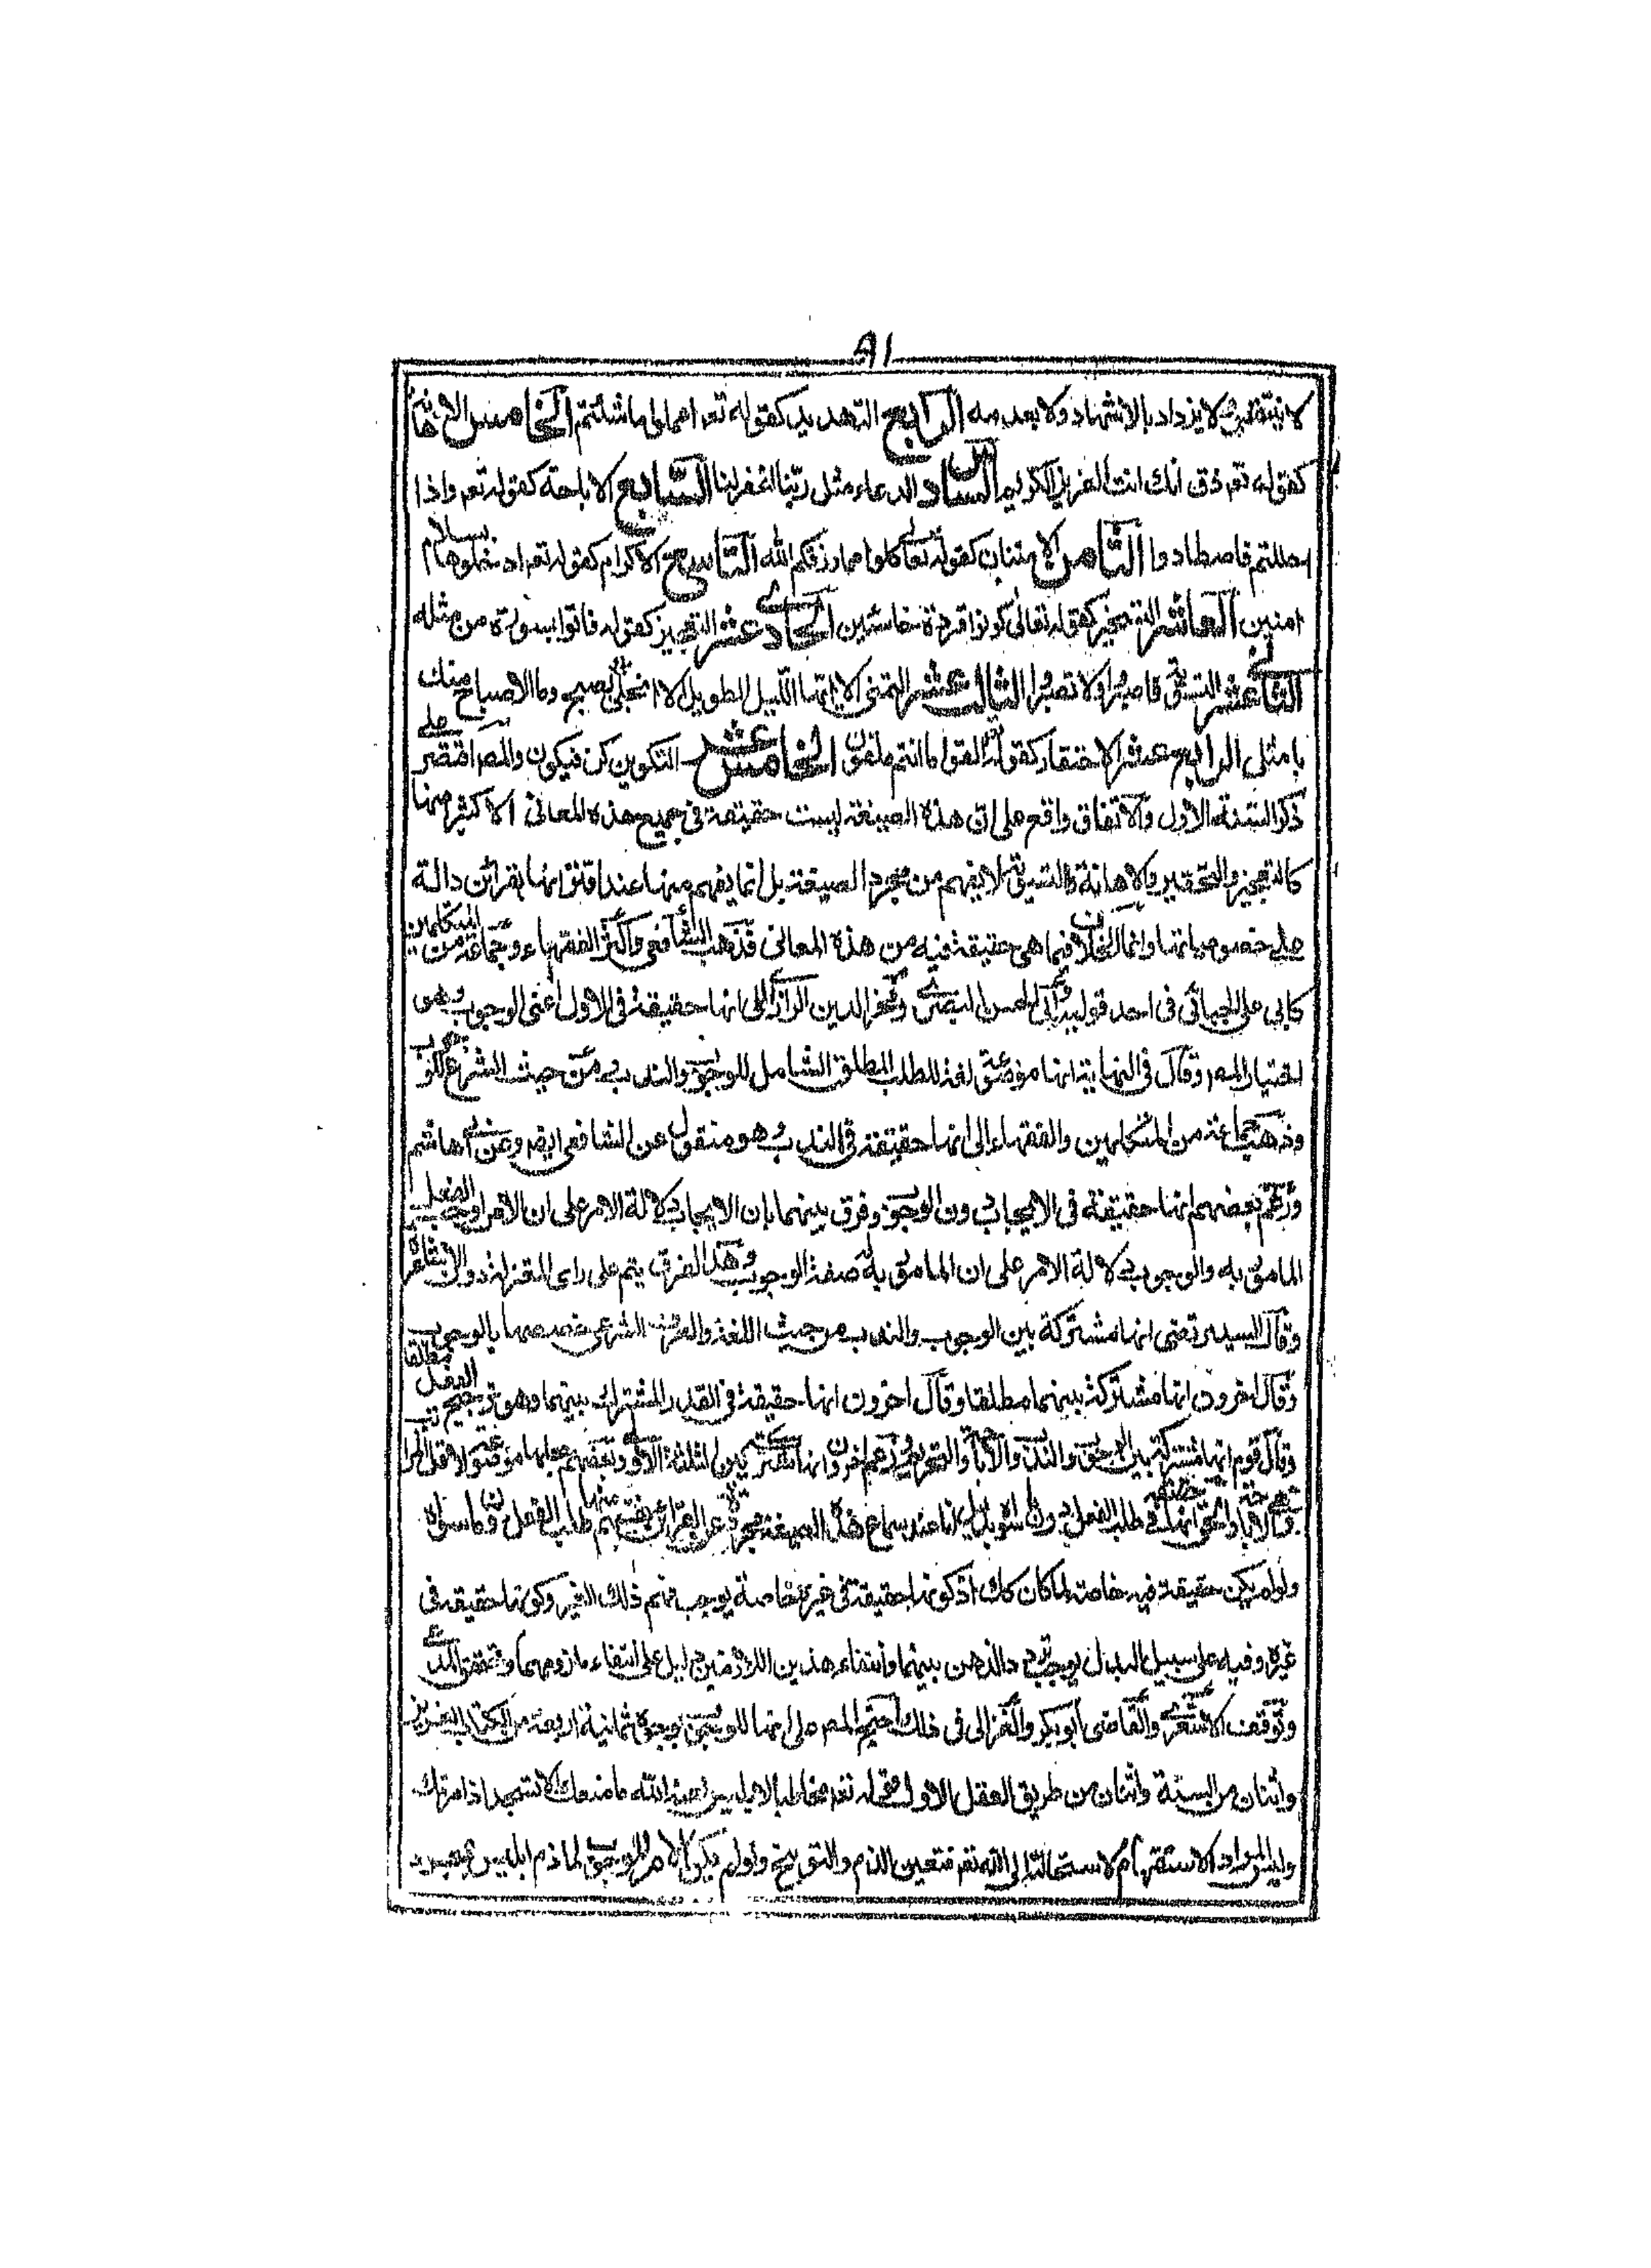 ٨١
لا ينتقص ولا يزداد بالاشهاد ولا بعدمه الرابع التهديد كقوله تعم اعملوا ما شئتم الخامس الاهانة
كقوله تعم ذق انك انت العزيز الكريم السادس الدعاء مثل ربنا اغفر لنا السابع الاباحة كقوله تعم واذا
حللتم فاصطادوا الثامن الامتنان كقوله تعالى كلوا مما رزقكم الله التاسع الاكرام كقوله تعم ادخلوها بسلام
امنين العاشر التسخير كقوله تعالى كونوا قردة خاسئين الحادي عشر التعجيز كقوله فاتوا بسورة من مثله
الثاني عشر التسوية فاصبروا او لا تصبروا الثالث عشر التمني الا ايها الليل الطويل الا انجلي بصبح وما الاصباح منك
بامثل الرابع عشر الاحتقار كقوله القوا ما انتم ملقون الخامس عشر التكوين كن فيكون والمص اقتصر على
ذكر الستة الاول والاتفاق واقع على ان هذه الصيغة ليست حقيقة في جميع هذه المعاني الاكثر منها
كالتعجيز والتحقير والاهانة والتسوية لا يفهم من مجرد الصيغة بل انما يفهم منها عند اقترانها بقرائن دالة
على خصوصياتها وانما الخلاف فيما هي حقيقة فيه من هذه المعاني فذهب الشافعي واكثر الفقهاء وجماعة من المتكلمين
كابي على الجبائي في احد قوليه وابى الحسن البصري وفخر الدين الرازي الى انها حقيقة في الاول اعنى الوجوب وهو
اختيار المص وقال في النهاية انها موضوعة لغة للطلب المطلق الشامل للوجوب والندب ومن حيث الشرع للوجوب
وذهب جماعة من المتكلمين والفقهاء الى انها حقيقة في الندب وهو منقول عن الشافعي ايضا وعن ابى هاشم
وزعم بعضهم انها حقيقة في الايجاب دون الوجوب وفرق بينهما بان الايجاب دلالة الامر على ان الامر اوجب الفعل
المامور به والوجوب دلالة الامر على ان المامور به له صفة الوجوب وهذا الفرق يتم على راى المعتزلة دون الاشاعرة
وقال السيد مرتضى انها مشتركة بين الوجوب والندب من حيث اللغة والعرف الشرعى خصصها بالوجوب
وقال اخرون انها مشتركة بينهما مطلقا وقال اخرون انها حقيقة في القدر المشترك بينهما وهو ترجيح الفعل مطلقا
وقال قوم انها مشتركة بين الوجوب والندب والاباحة والتحريم وزعم اخرون انها مشتركة بين الثلثة الاول وبعضهم جعلها موضوعة لاقل المراتب
وهي الاباحة والحق انها حقيقة في طلب الفعل لانا عند سماع هذه الصيغة مجردة عن القرائن نفهم منها طلب الفعل دون ما سواه
ولو لم يكن حقيقة فيه خاصة لما كان كك اذ كونها حقيقة في غيره خاصة يوجب فهم ذلك الغير وكونها حقيقة في
غيره وفيه على سبيل البدل يوجب تردد الذهن بينهما وانتفاء هذين اللازمين دليل على انتفاء ملزومهما وتحقق المدعى
وتوقف الاشعري والقاضي ابو بكر والغزالى في ذلك احتج المص على انها للوجوب بوجوه ثمانية اربعة من الكتاب العزيز
واثنان من السنة واثنان من طريق العقل الاول قوله تعم مخاطبا لابليس لعنه الله ما منعك الا تسجد اذ امرتك
وليس المراد الاستفهام لاستحالته الى الله تعم فتعين الذم والتوبيخ ولو لم يكن الامر للوجوب لما ذم ابليس